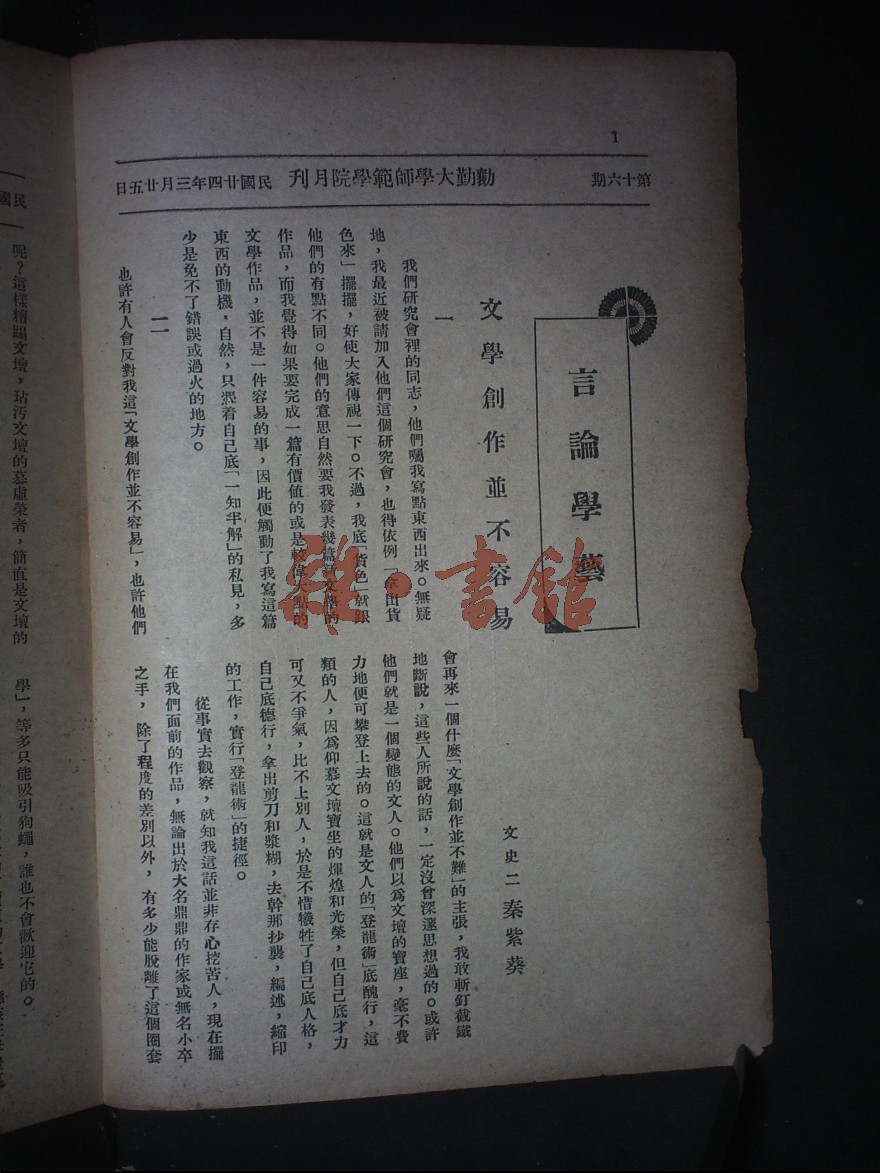 1
第十六期
勷勤大學師範學院月刊
民國廿四年三月廿五日
言論學藝
文學創作並不容易
文史二秦紫葵
一
我們研究會裡的同志，他們囑我寫點東西出來。無疑
地，我最近被請加入他們這個研究會，也得依例「拿出貨
色來」擺擺，好使大家傳視一下。不過，我底「貨色」就跟
他們的有點不同。他們的意思自然要我發表幾篇新文學的
作品，而我覺得如果要完成一篇有價値的或是較偉大點的
文學作品，並不是一件容易的事，因此便觸動了我寫這篇
東西的動機，自然，只憑着自己底「一知半解」的私見，多
少是免不了錯誤或過火的地方。
二
也許有人會反對我這「文學創作並不容易」，也許他們
會再來一個什麼「文學創作並不難」的主張，我敢斬釘截鐵
地斷說，這些人所說的話，一定沒曾深邃思想過的。或許
他們就是一個變態的文人。他們以爲文壇的寶座，毫不費
力地便可攀登上去的。這就是文人的「登龍術」底醜行，這
類的人，因爲仰慕文壇寶坐的煇煌和光榮，但自己底才力
可又不爭氣，比不上別人，於是不惜犧牲了自己底人格，
自己底德行，拿出剪刀和漿糊，去幹那抄襲，編述，縮印
的工作，實行「登龍術」的捷徑。
從事實去觀察，就知我這話並非存心挖苦人，現在擺
在我們面前的作品，無論出於大名鼎鼎的作家或無名小卒
之手，除了程度的差別以外，有多少能脫離了這個圈套
民國
呢？這樣糟蹋文壇，玷汚文壇的慕虛榮者，簡直是文壇的
學」，等多只能吸引狗蠅，誰也不會歡迎它的。
雜·書館